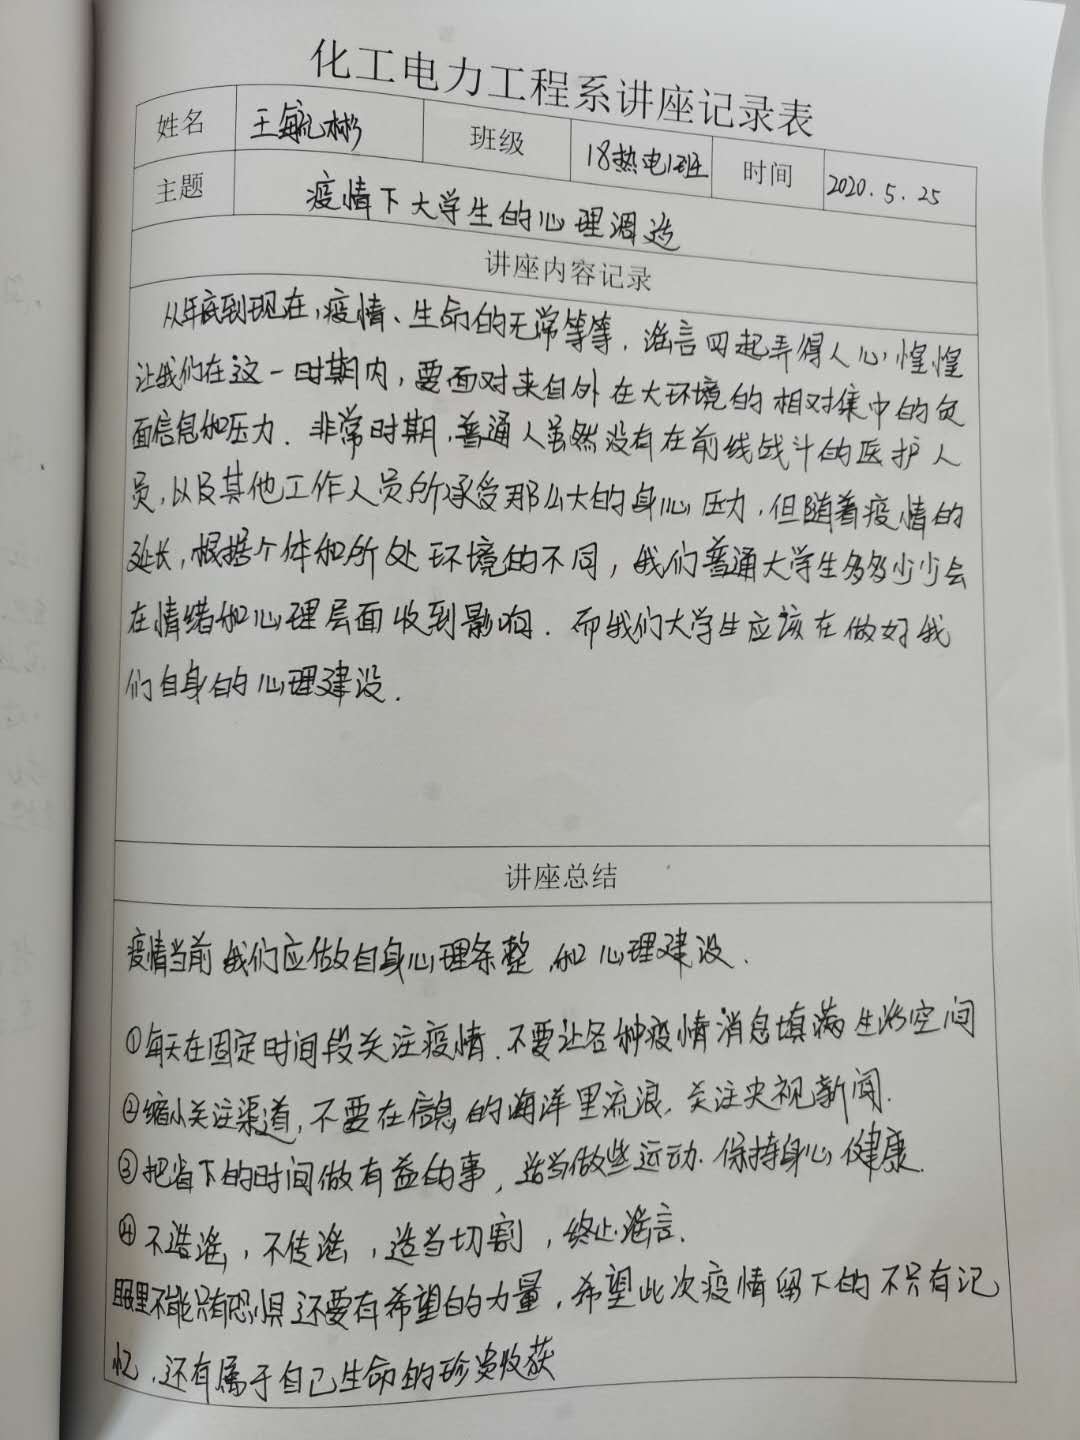 化工电力工程系讲座记录表
姓名 王毓彬 班级 18热电1班 时间 2020.5.25
主题 疫情下大学生的心理调适
讲座内容记录
从年底到现在,疫情、生命的无常等等.谣言四起弄得人心惶惶
让我们在这一时期内,要面对来自外在大环境的相对集中的负
面信息和压力.非常时期,普通人虽然没有在前线战斗的医护人
员,以及其他工作人员所承受那么大的身心压力,但随着疫情的
延长,根据个体和所处环境的不同,我们普通大学生多多少少会
在情绪和心理层面收到影响.而我们大学生应该在做好我
们自身的心理建设.
讲座总结
疫情当前我们应做自身心理条整,和心理建设.
①每天在固定时间段关注疫情.不要让各种疫情消息填满生活空间
②缩小关注渠道,不要在信息的海洋里流浪.关注央视新闻.
③把省下的时间做有益的事,适当做些运动.保持身心健康.
④不造谣,不传谣,适当切割,终止谣言.
眼里不能只有恐惧还要有希望的力量,希望此次疫情留下的不只有记
忆,还有属于自己生命的珍贵收获